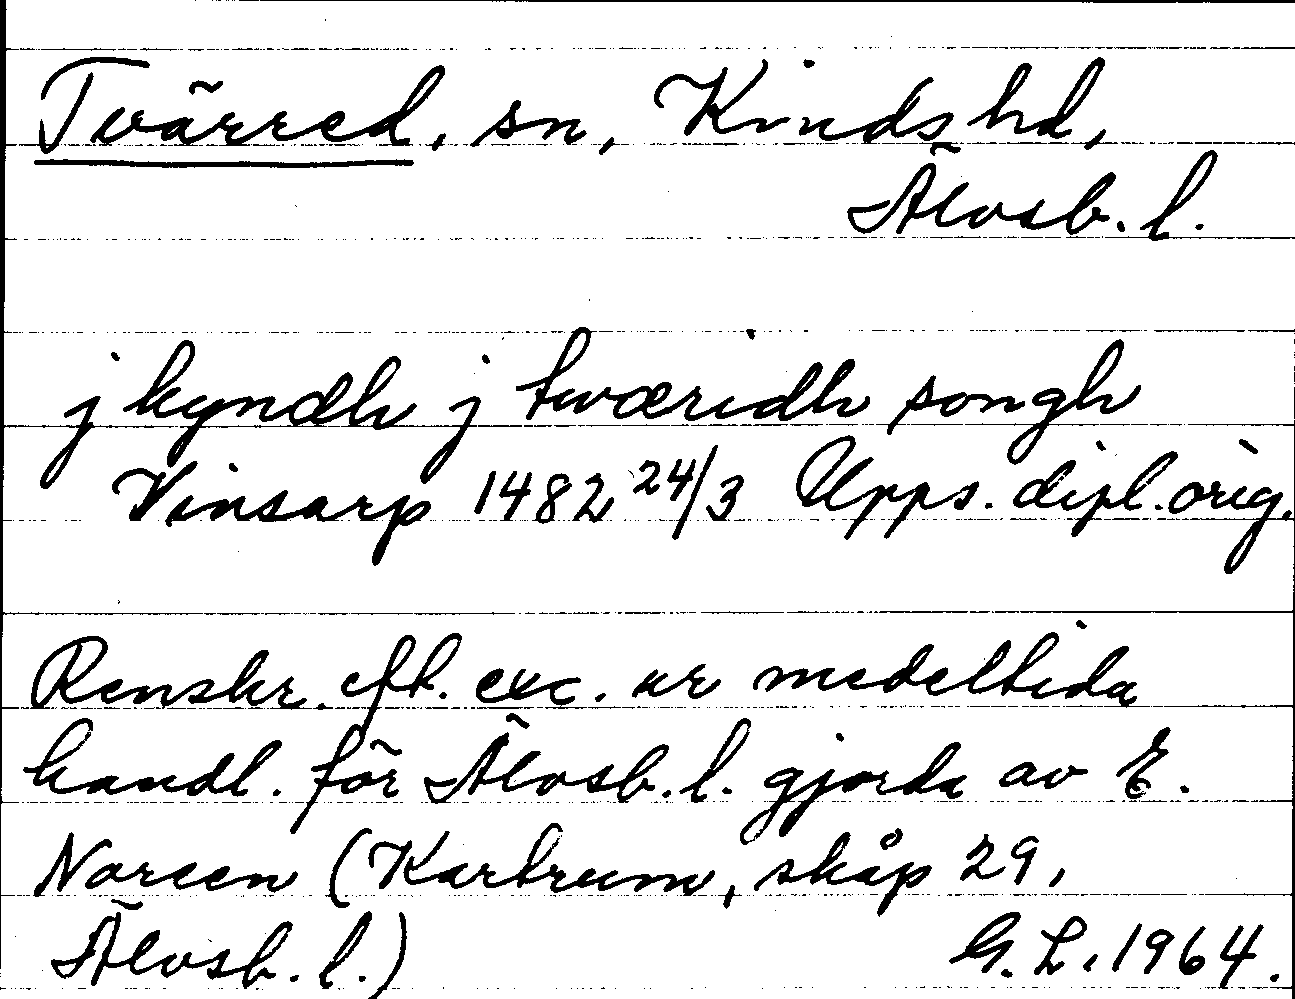 Tvärred, sn, Kinds hd,
Älvsb. l.
j kyndh j twæridh songh
Vinsarp 1482 24/3 Upps. dipl. orig.
Renskr. eft. exc. ur medeltida
handl. för Älvsb. l. gjorda av E.
Noreen (Kartrum, skåp 29,
Älvsb. l.) G. L. 1964.